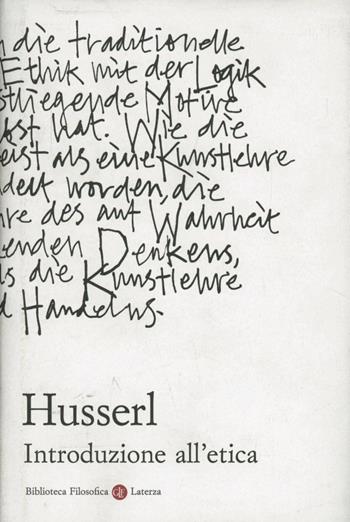 die traditionelle
Ethik mit der Logik
liegende Motive
hat. Wie die
als eine Kunstlehre
worden, die
des auf Wahrheit
enden Denkens,
die Kunstlehre
Handelns.
Husserl
Introduzione all'etica
Biblioteca Filosofica GLF Laterza